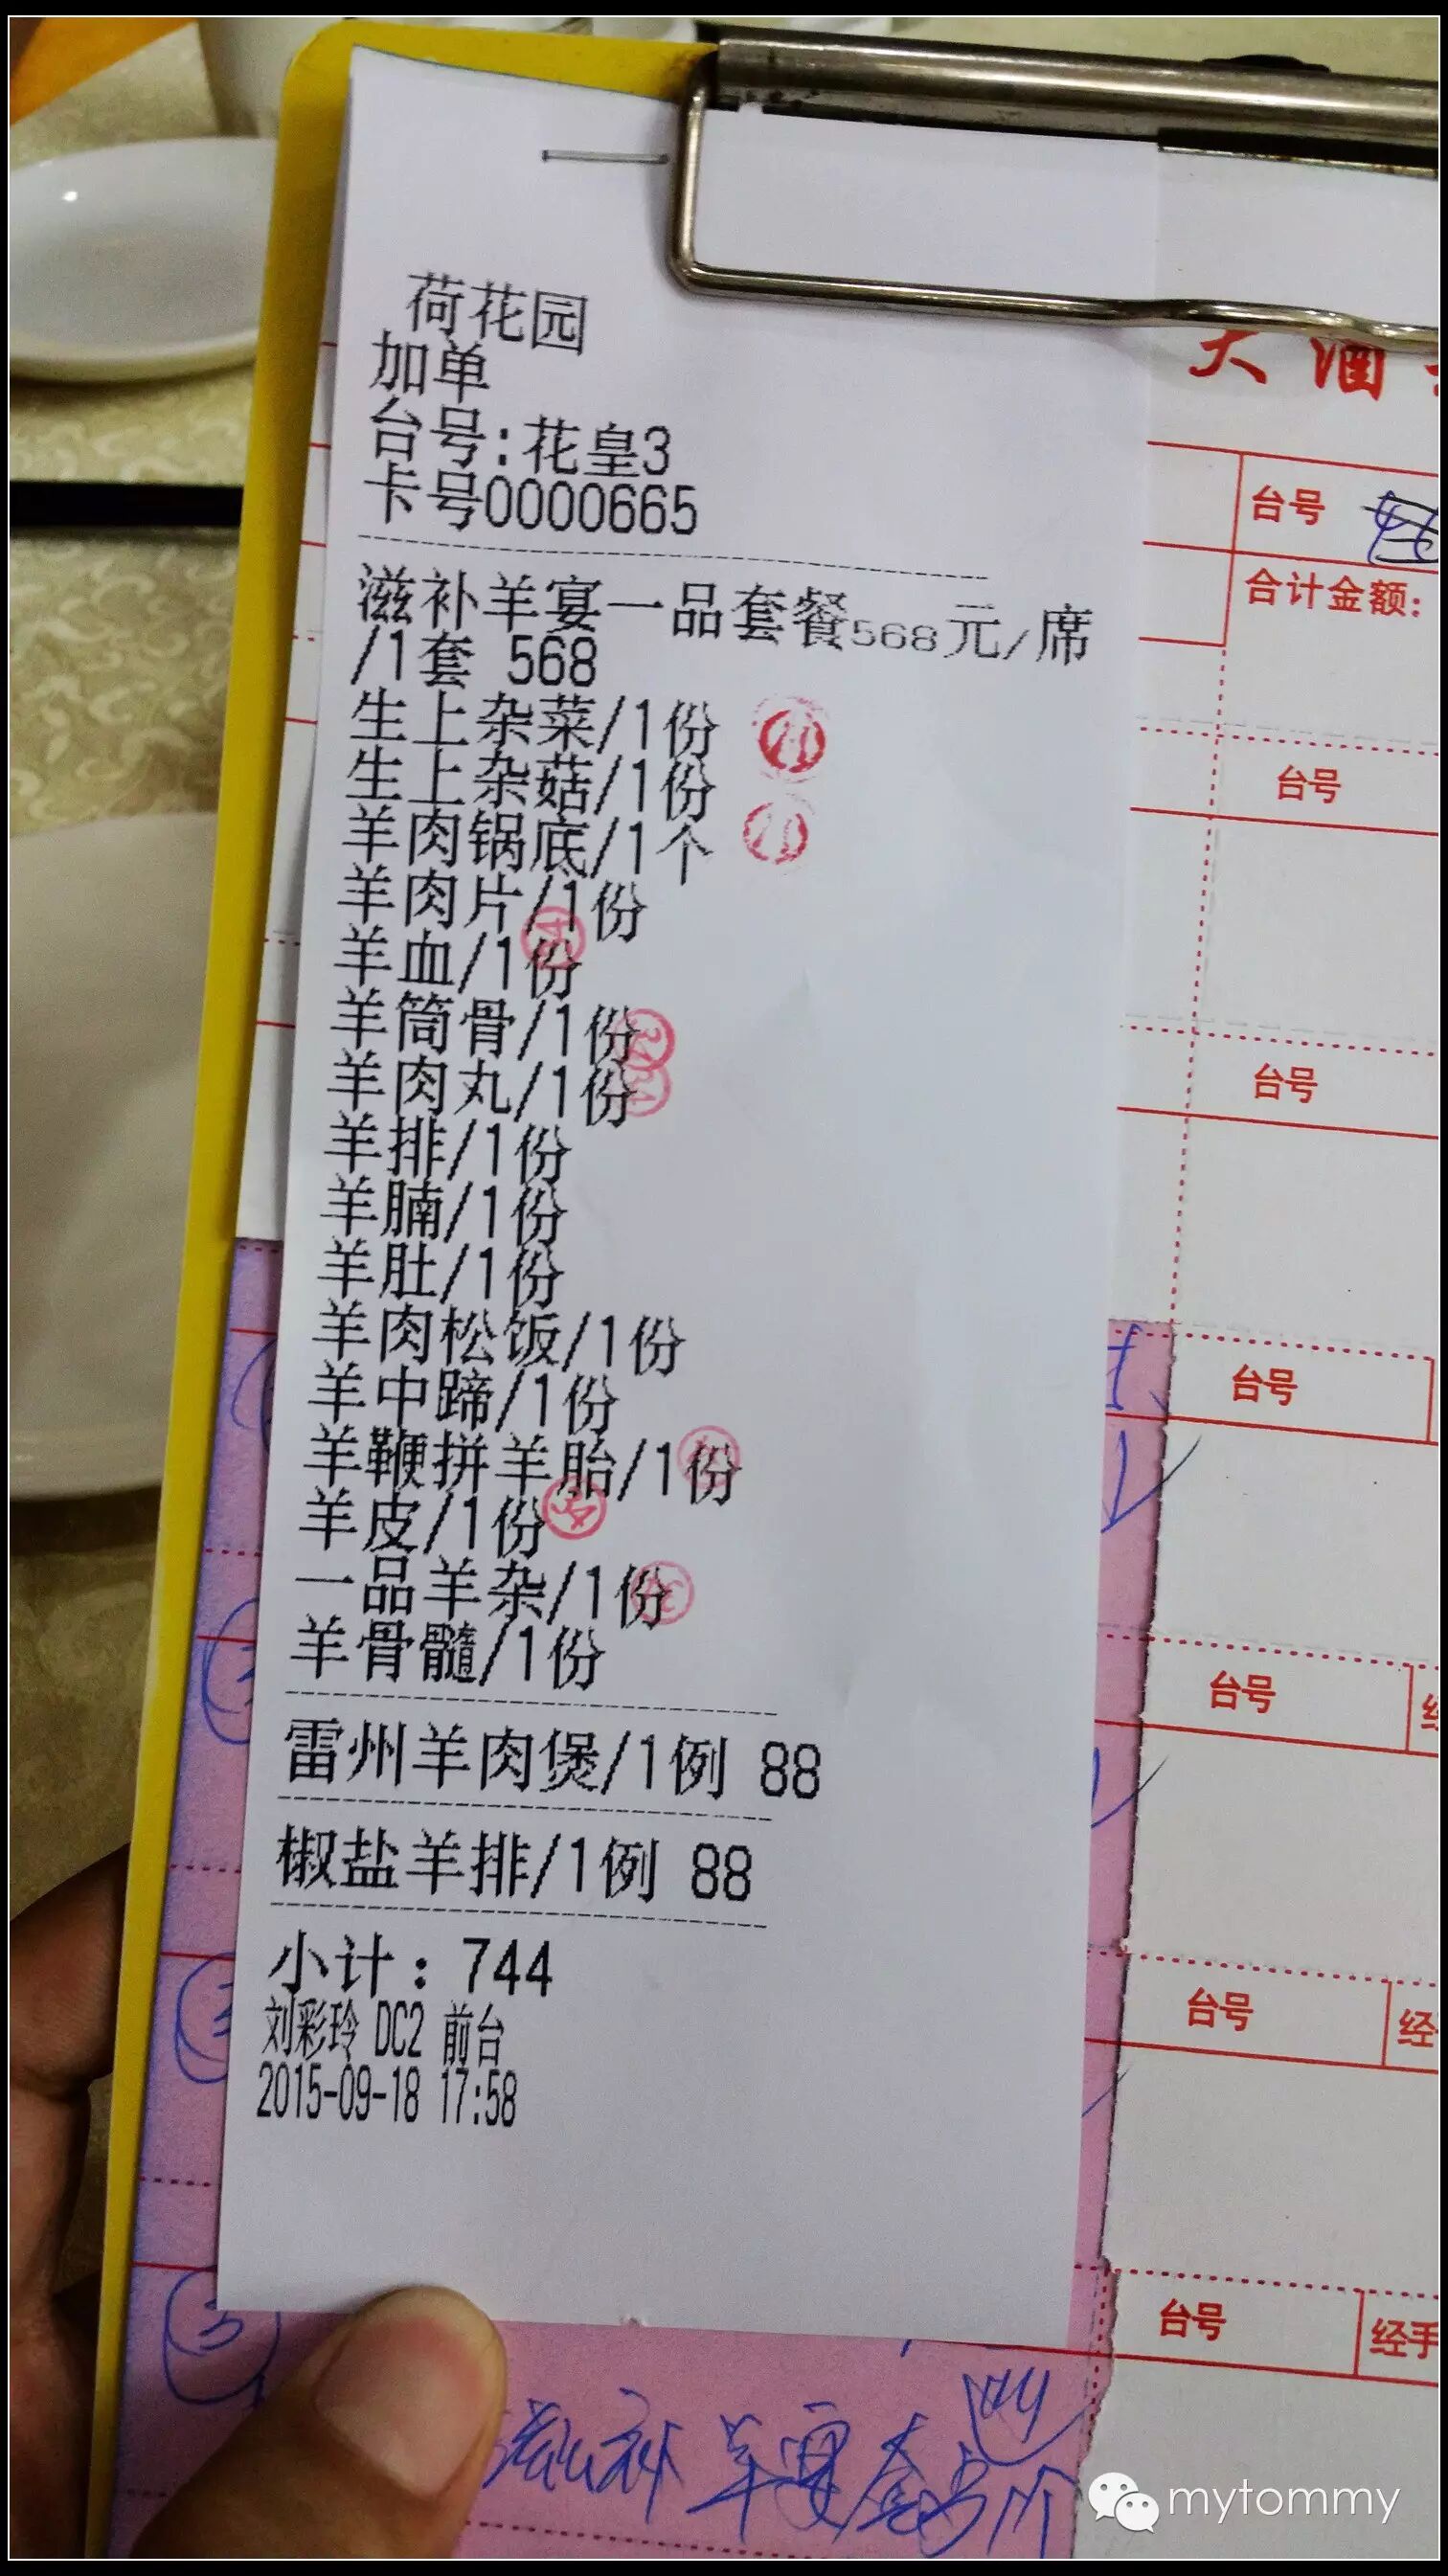 荷花园
加单
台号:花皇3
卡号0000665
滋补羊宴一品套餐568元/席
/1套 568
生上杂菜/1份
生上杂菇/1份
羊肉锅底/1个
羊肉片/1份
羊血/1份
羊筒骨/1份
羊肉丸/1份
羊排/1份
羊腩/1份
羊肚/1份
羊肉松饭/1份
羊中蹄/1份
羊鞭拼羊胎/1份
羊皮/1份
一品羊杂/1份
羊骨髓/1份
雷州羊肉煲/1例 88
椒盐羊排/1例 88
小计：744
刘彩玲 DC2 前台
2015-09-18 17:58
大酒
台号
合计金额:
台号
台号
台号
台号
台号
经
台号
经手
滋补羊宴套
mytommy